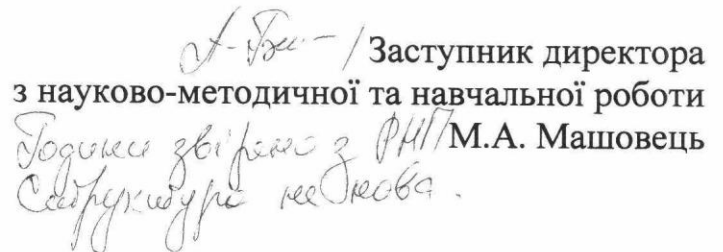 / Заступник директора
з науково-методичної та навчальної роботи
Години звірено з РНП / М.А. Машовець
Структура не нова.